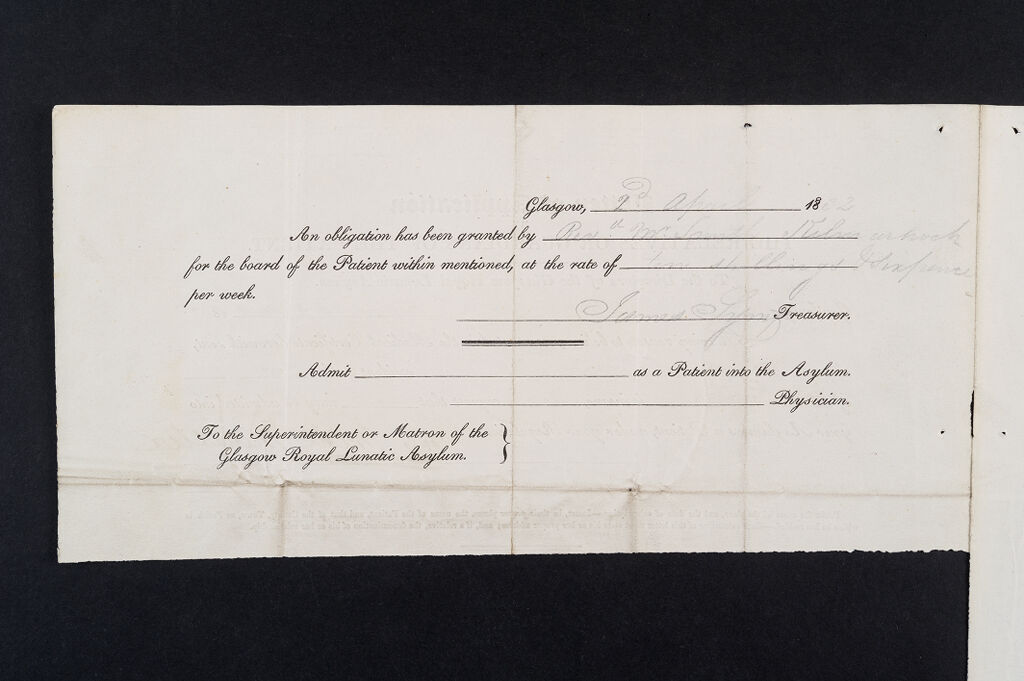 Glasgow, 2d April 18
An obligation has been granted by Revd Mr Kilmarnock
for the board of the Patient within mentioned, at the rate of shillings & Sixpence
per week.
James Treasurer.
Admit as a Patient into the Asylum.
Physician.
To the Superintendent or Matron of the
Glasgow Royal Lunatic Asylum.